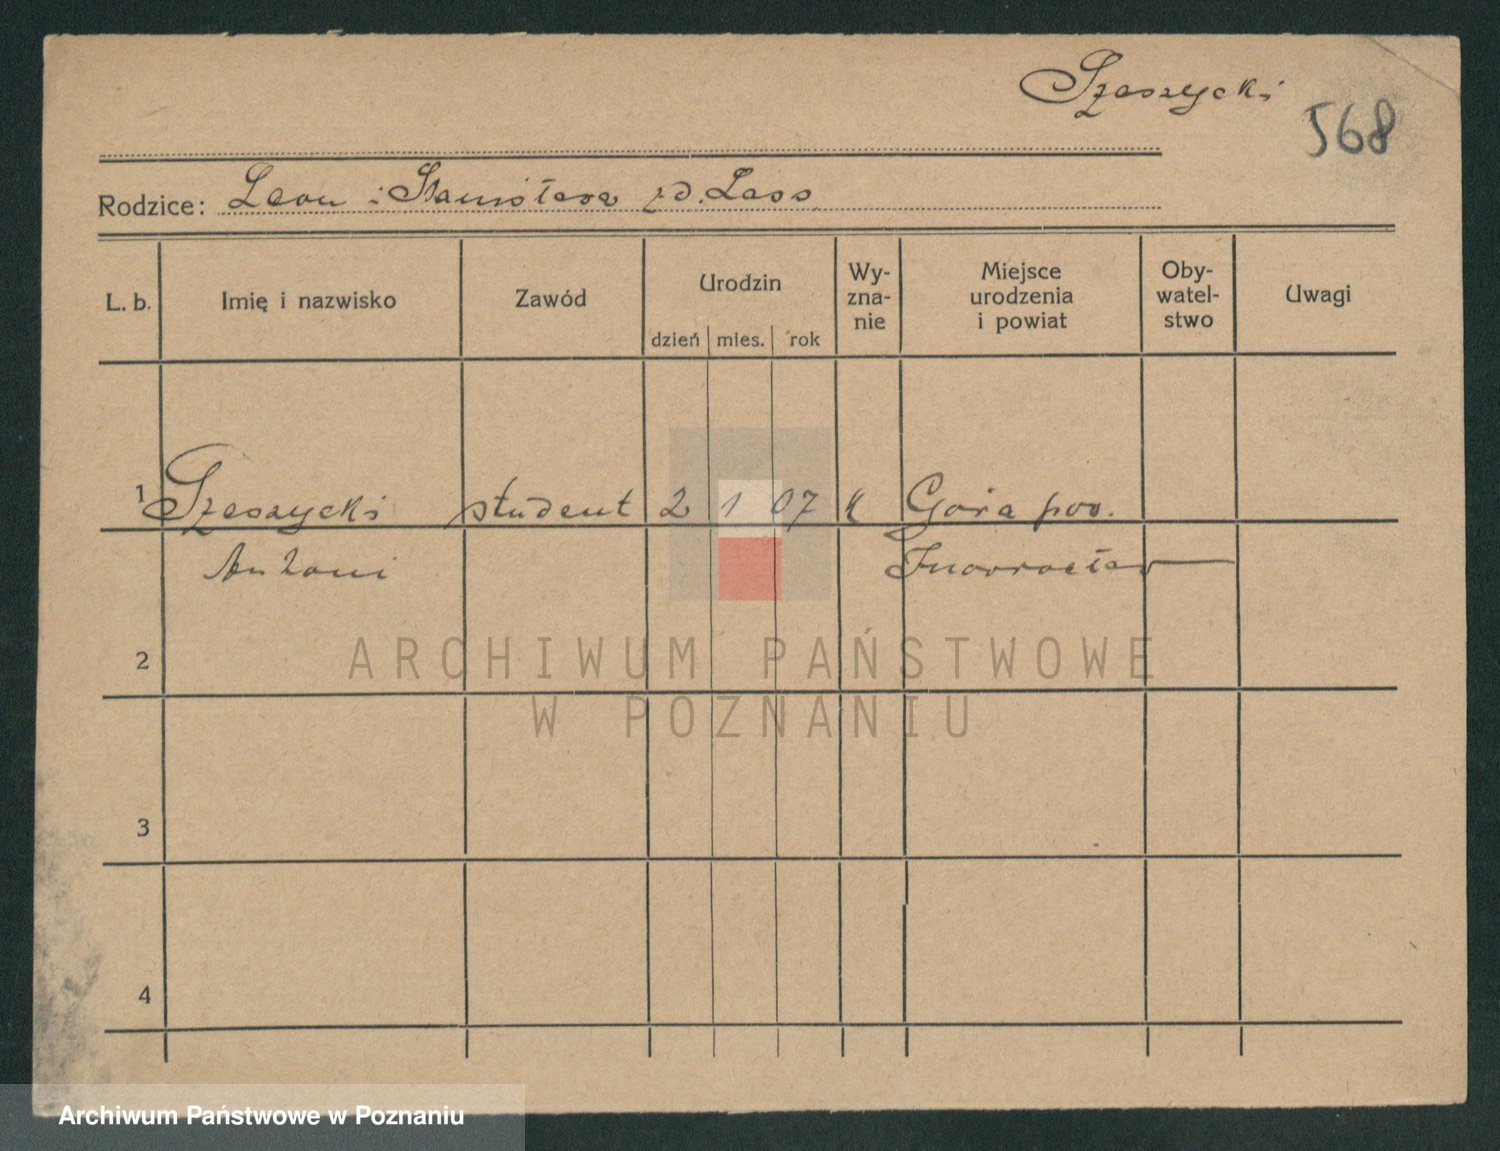 Szeszycki
568
Rodzice: Leon i Stanisława zd. Lass
L. b. Imię i nazwisko Zawód Urodzin dzień mies. rok Wyzna-nie Miejsce urodzenia i powiat Oby-watel-stwo Uwagi
1 Szeszycki student 2 1 07 k Góra pow.
Antoni Inowrocław
2
ARCHIWUM PAŃSTWOWE
W POZNANIU
3
4
Archiwum Państwowe w Poznaniu